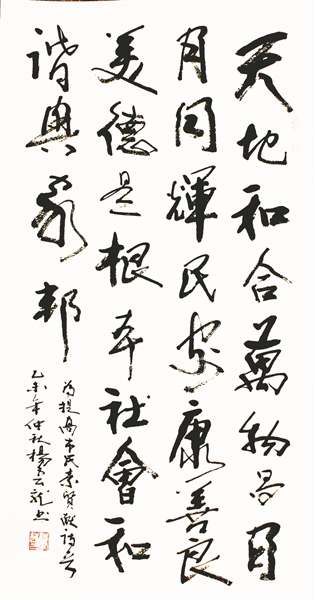 天地和合萬物昌日
月同輝民安康善良
美德是根本社會和
諧興家邦
為提高市民素質
乙未年仲秋楊龍書